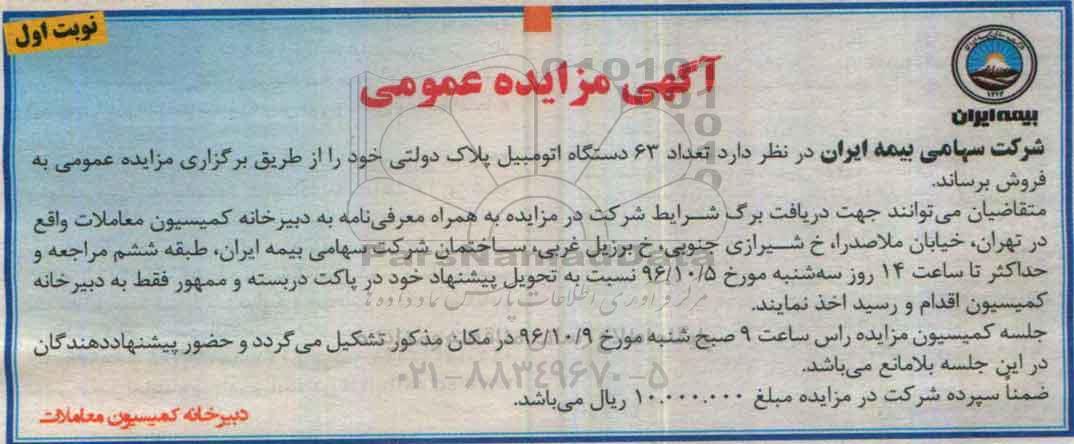 نوبت اول
بیمه ایران
آگهی مزایده عمومی
شرکت سهامی بیمه ایران در نظر دارد تعداد ۶۳ دستگاه اتومبیل پلاک دولتی خود را از طریق برگزاری مزایده عمومی به
فروش برساند.
متقاضیان می‌توانند جهت دریافت برگ شرایط شرکت در مزایده به همراه معرفی‌نامه به دبیرخانه کمیسیون معاملات واقع
در تهران، خیابان ملاصدرا، خ شیرازی جنوبی، خ برزیل غربی، ساختمان شرکت سهامی بیمه ایران، طبقه ششم مراجعه و
حداکثر تا ساعت ۱۴ روز سه‌شنبه مورخ ۹۶/۱۰/۵ نسبت به تحویل پیشنهاد خود در پاکت دربسته و ممهور فقط به دبیرخانه
کمیسیون اقدام و رسید اخذ نمایند.
جلسه کمیسیون مزایده راس ساعت ۹ صبح شنبه مورخ ۹۶/۱۰/۹ در مکان مذکور تشکیل می‌گردد و حضور پیشنهاددهندگان
در این جلسه بلامانع می‌باشد.
ضمناً سپرده شرکت در مزایده مبلغ ۱۰.۰۰۰.۰۰۰ ریال می‌باشد.
دبیرخانه کمیسیون معاملات
ParsNamadData
مرکز فرآوری اطلاعات پارس نماد داده ها
۰۲۱-۸۸۳۴۹۶۷۰-۵